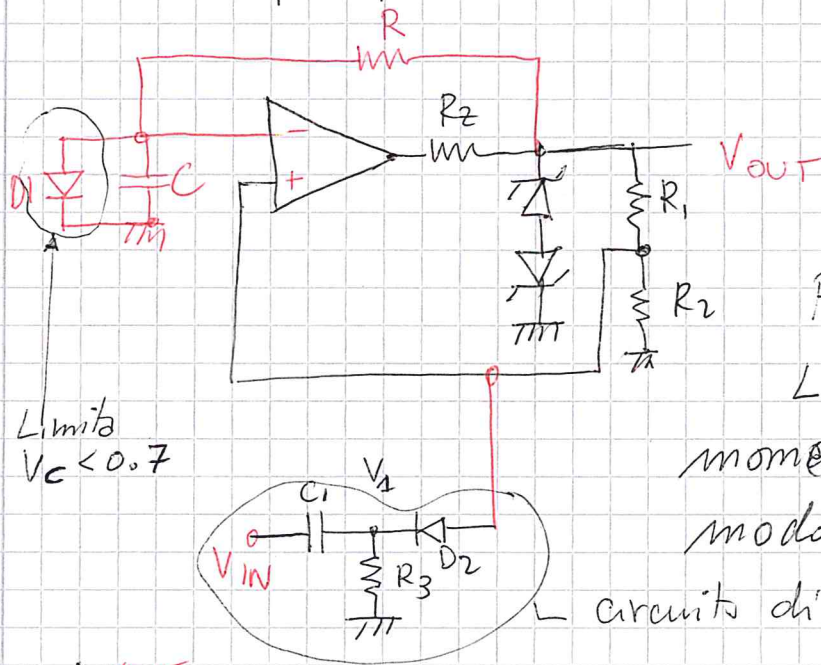 R
Rz
−
+
D1
C
VOUT
R1
R2
Limita
Vc < 0.7
V1
C1
VIN
R3
D2
L
mome
modo
circuito di